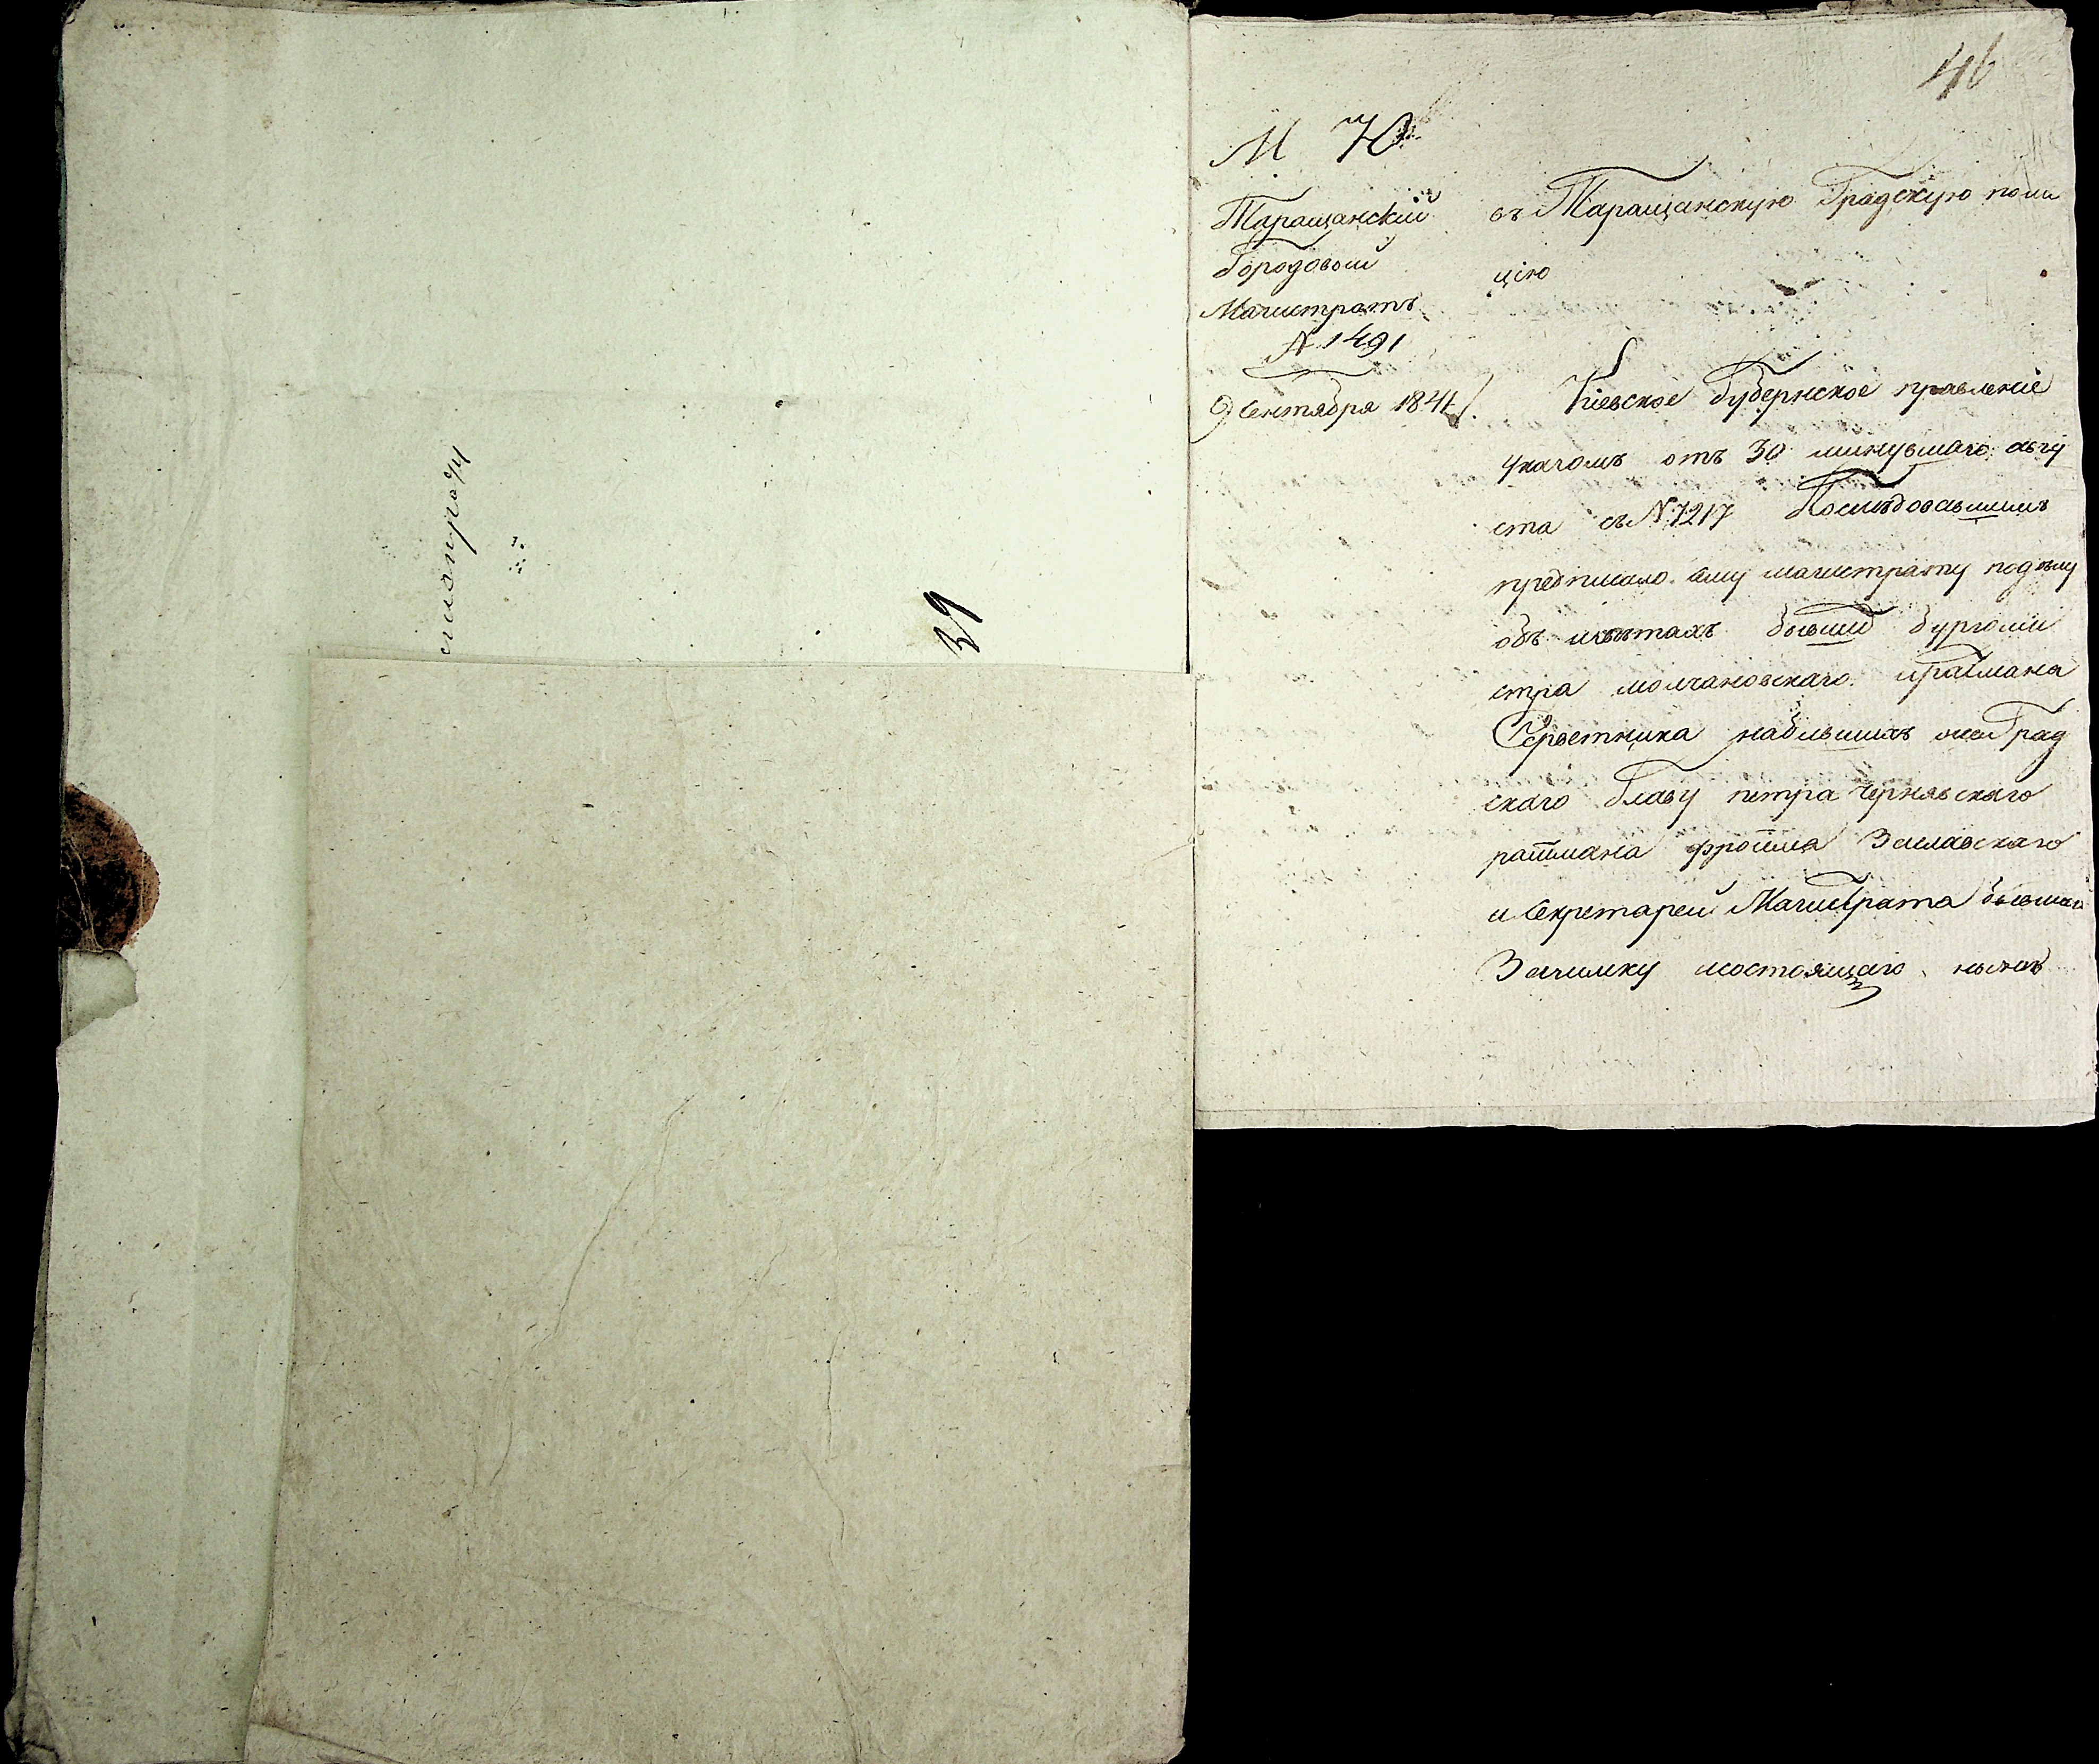 46
М Ю
Таращанскій
Городовый
Магистратъ
N 1491
9 Сентября 1841/.
въ Таращанскую Градскую поли
цію
Кіевское Губернское правленіе
указомъ отъ 30 минувшаго авгу
ста съ N 7217 Послѣдовавшимъ
предписало ему магистрату по дѣлу
объ бывш бургоми
стра молчановскаго иратмана
Серветника набывшихъ Град
скаго Главу петра Чернявскаго
ратмана фроима Заславскаго
и Секретарей Магистрата бывшаго
Зачимку исостоящаго нынѣ
39